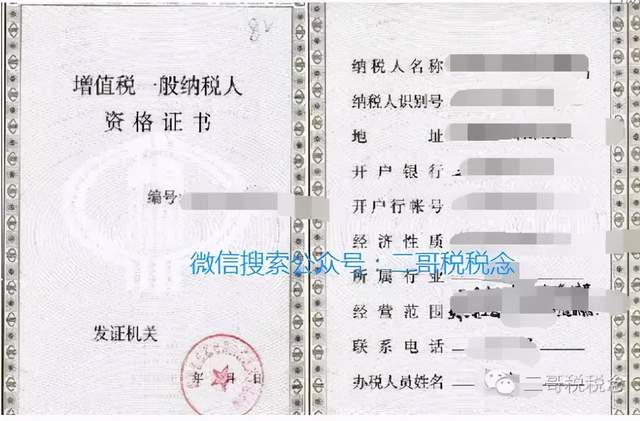 增值税一般纳税人
资格证书
编号:
发证机关
年 月 日
纳税人名称
纳税人识别号
地 址
开户银行
开户行帐号
经济性质
所属行业
经营范围
联系电话
办税人员姓名
微信搜索公众号：二哥税税念
二哥税税念